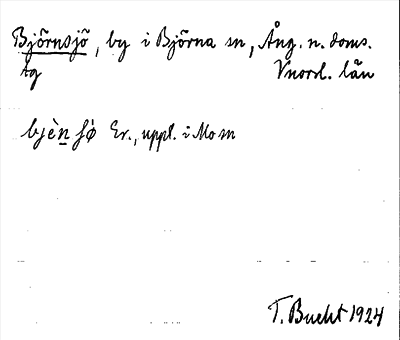 Björnsjö, by i Björna sn, Ång. n. doms.
tg Vnorrl. län
bjèn ʃö̀ Er., uppl. i Mo sn
T. Bucht 1924